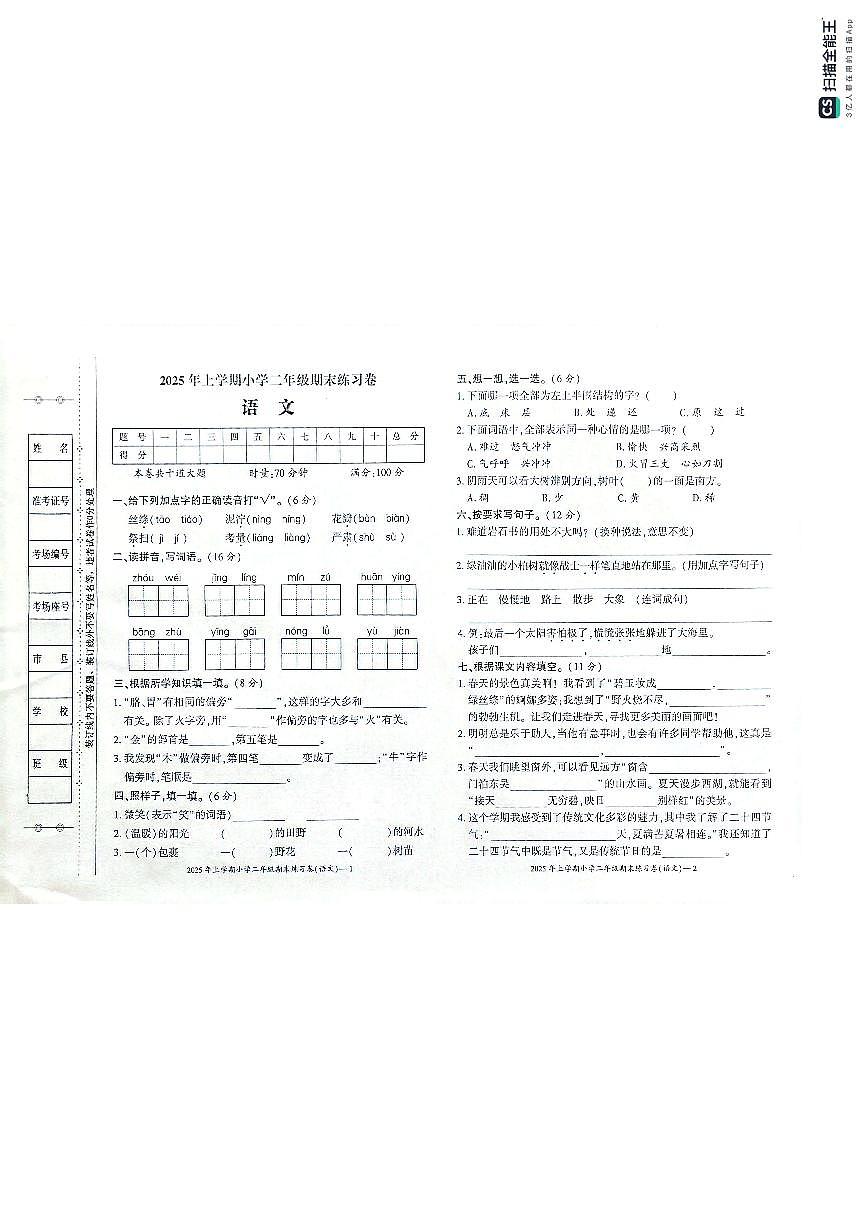 CS 扫描全能王
3亿人都在用的扫描App
姓 名
准考证号
考场编号
考场座号
市 县
学 校
班 级
装订线内不要答题、装订线外不要写姓名等，违者试卷作0分处理
2025年上学期小学二年级期末练习卷
语 文
题 号 一 二 三 四 五 六 七 八 九 十 总 分
得 分
本卷共十道大题 时量:70分钟 满分:100分
一、给下列加点字的正确读音打“√”。(6分)
丝绦(tāo tiáo) 泥泞(nìng níng) 花瓣(bàn biàn)
祭扫(jì jí) 考量(liáng liàng) 严肃(shù sù)
二、读拼音,写词语。(16分)
zhōu wéi jīng líng mín zú huān yíng
bāng zhù yīng gāi nóng lǜ yù jiàn
三、根据所学知识填一填。(8分)
1.“胳、胃”有相同的偏旁“________”,这样的字大多和________
有关。除了火字旁,用“________”作偏旁的字也多与“火”有关。
2.“金”的部首是________,第五笔是________。
3.我发现“木”做偏旁时,第四笔________变成了________;“牛”字作
偏旁时,笔顺是________。
四、照样子,填一填。(6分)
1.微笑(表示“笑”的词语)________
2.(温暖)的阳光 ( )的田野 ( )的河水
3.一(个)包裹 一( )野花 一( )树苗
2025年上学期小学二年级期末练习卷(语文)—1
五、想一想,选一选。(6分)
1.下面哪一项全部为左上半围结构的字? ( )
A.底 床 层 B.处 递 还 C.原 这 过
2.下面词语中,全部表示同一种心情的是哪一项? ( )
A.难过 怒气冲冲 B.愉快 兴高采烈
C.气呼呼 兴冲冲 D.火冒三丈 心如刀割
3.阴雨天可以看大树辨别方向,树叶( )的一面是南方。
A.稠 B.少 C.黄 D.稀
六、按要求写句子。(12分)
1.难道岩石书的用处不大吗? (换种说法,意思不变)
2.绿油油的小柏树就像战士一样笔直地站在那里。(用加点字写句子)
3.正在 慢慢地 路上 散步 大象 (连词成句)
4.例:最后一个太阳害怕极了,慌慌张张地躲进了大海里。
孩子们________,________地________。
七、根据课文内容填空。(11分)
1.春天的景色真美啊! 我看到了“碧玉妆成________,________
绿丝绦”的婀娜多姿;我想到了“野火烧不尽,________”
的勃勃生机。让我们走进春天,寻找更多美丽的画面吧!
2.明明总是乐于助人,当他有急事时,也会有许多同学帮助他,这真是
“________,________”。
3.春天我们眺望窗外,可以看见远方“窗含________,
门泊东吴________”的山水画。夏天漫步西湖,就能看到
“接天________无穷碧,映日________别样红”的美景。
4.这个学期我感受到了传统文化多彩的魅力,其中我了解了二十四节
气:“________天,夏满芒夏暑相连。”我还知道了
二十四节气中既是节气,又是传统节日的是________。
2025年上学期小学二年级期末练习卷(语文)—2